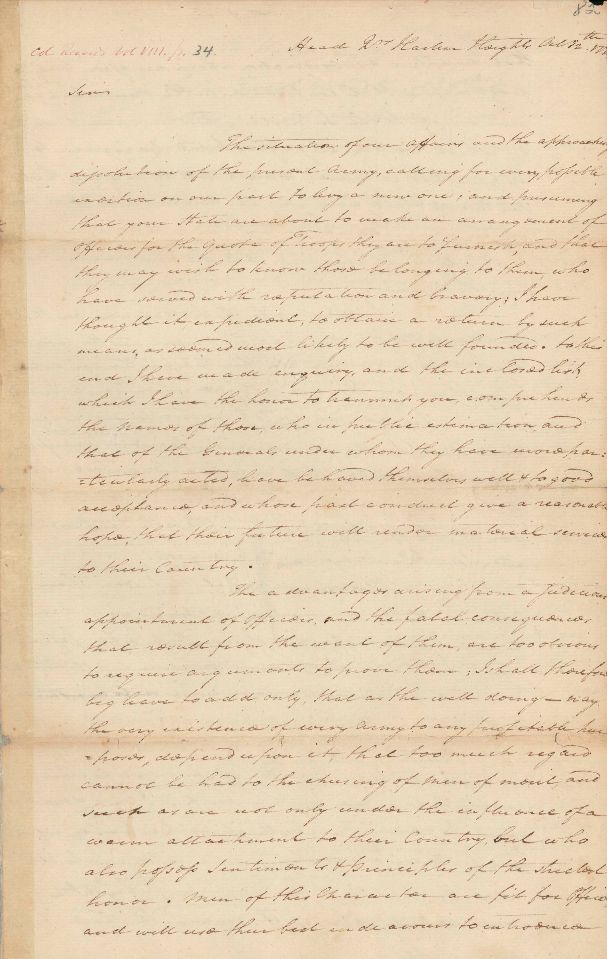 82
Col. Records Vol VIII. p. 34.
Head Qrs Harlem Heights Oct 12th 177
Sir
The situation of our affairs and the approaching
dissolution of the present Army, calling for every possible
exertion on our part to levy a new one; and presuming
that your State are about to make an arrangement of
Officers for the Quota of Troops they are to furnish, and that
they may wish to know those belonging to them, who
have served with reputation and bravery; I have
thought it expedient, to obtain a return by such
means, as seemed most likely to be well founded. To this
end I have made enquiry, and the inclosed list,
which I have the honor to transmit you, comprehends
the names of those, who in public estimation, and
that of the Generals under whom they have more par:
=ticularly acted, have behaved themselves well & to good
acceptance, and whose past conduct give a reasonable
hope, that their future will render material services
to their Country.
The advantages arising from a Judicious
appointment of Officers, and the fatal consequences
that result from the want of them, are too obvious
to require arguments to prove them; I shall therefore
beg leave to add only, that as the well doing – nay
the very existence of every Army to any profitable pur
=poses, depend upon it, that too much regard
cannot be had to the chusing of Men of merit and
such as are not only under the influence of a
warm attachment to their Country, but who
also possess Sentiments & principles of the strictest
honor. Men of this Character are fit for Office
and will use their best endeavours to introduce